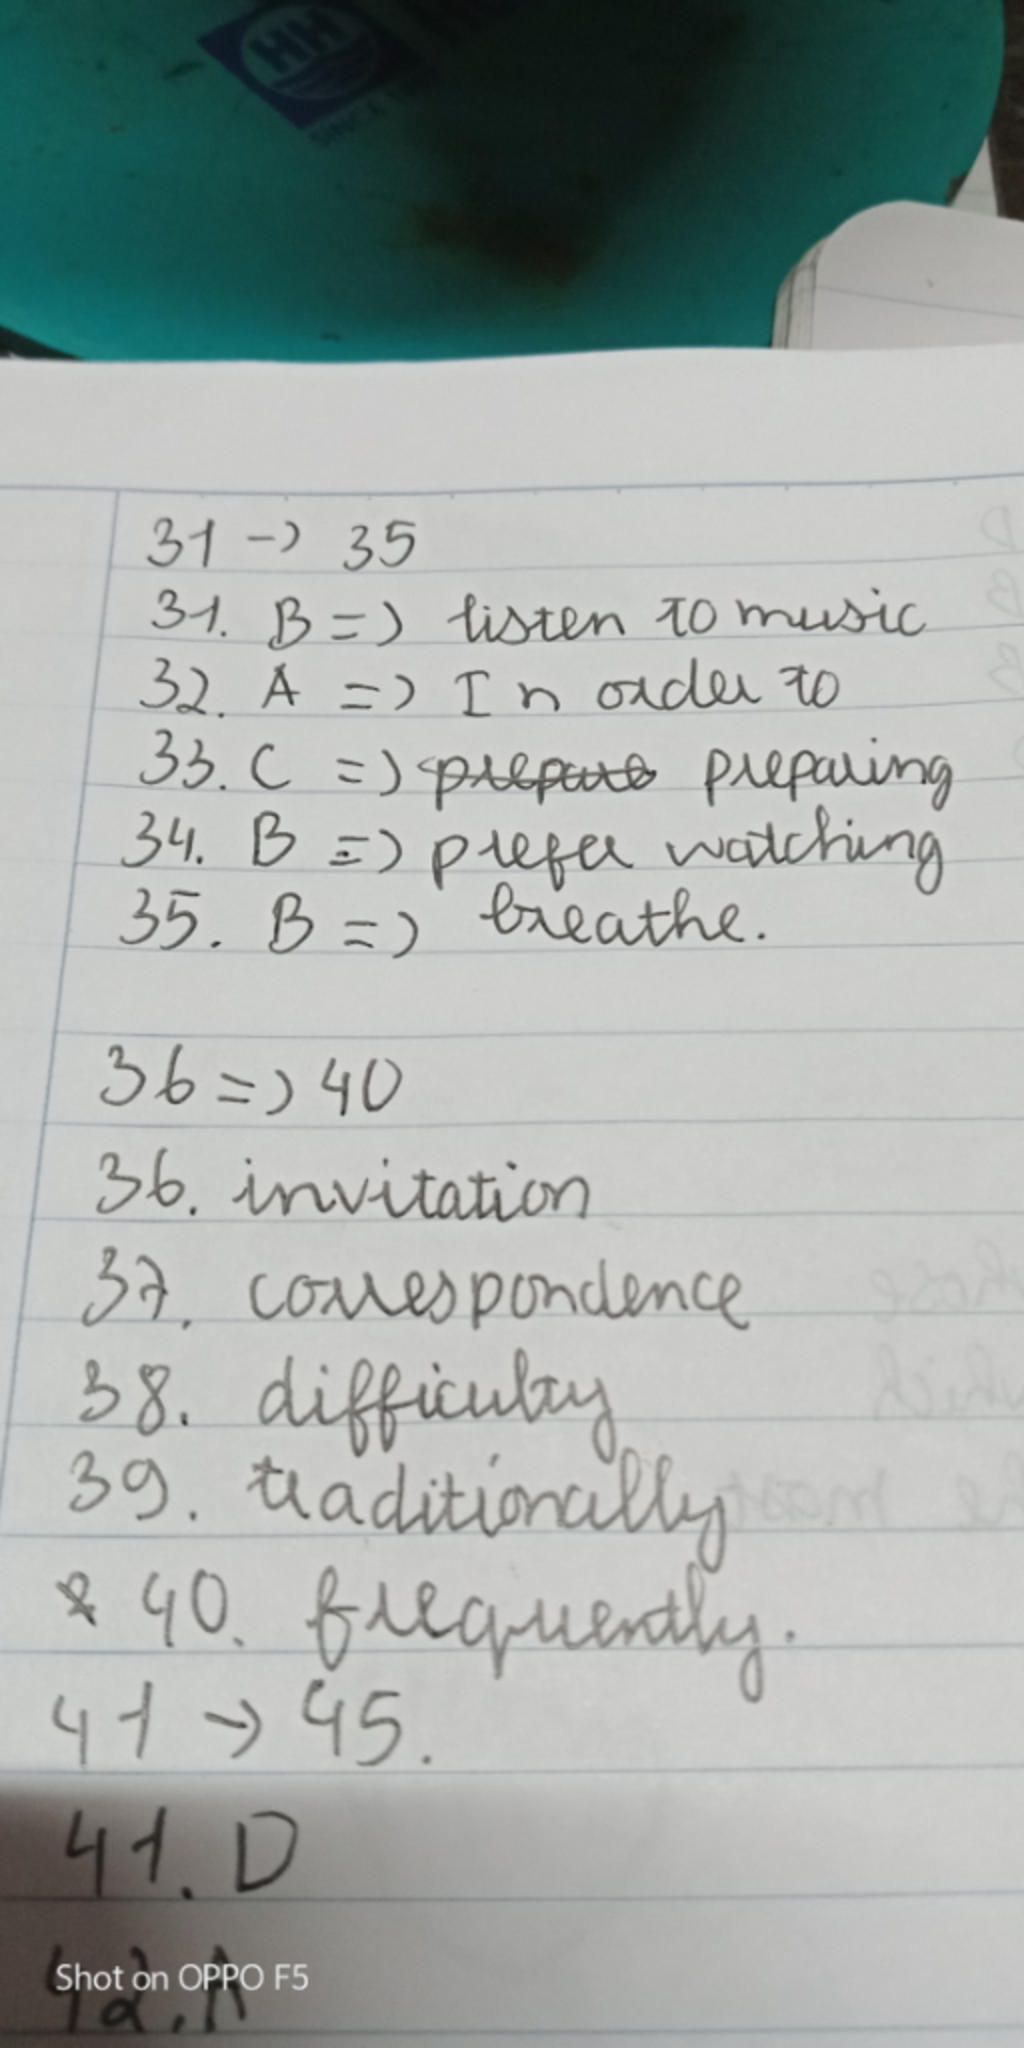 HH
SINCE
31 -> 35
31. B => listen to music
32. A => In order to
33. C => prepare preparing
34. B => prefer watching
35. B => breathe.
36 => 40
36. invitation
37. correspondence
38. difficulty
39. traditionally
* 40. frequently.
41 -> 45.
41. D
42. A
Shot on OPPO F5